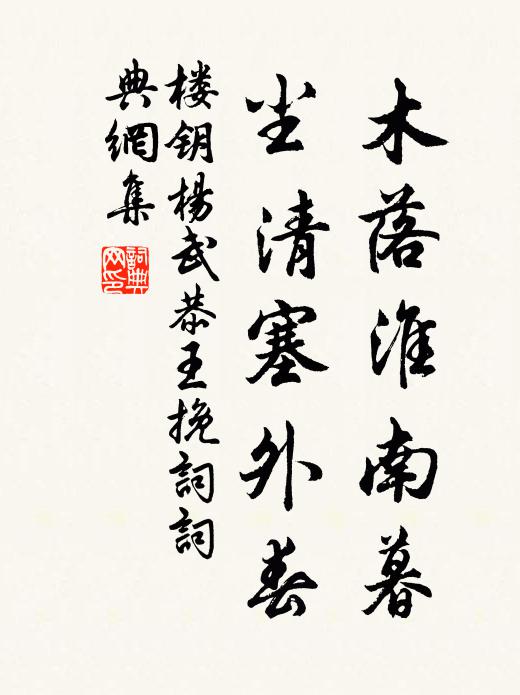 木落淮南暮
尘清塞外春
楼钥杨武恭王挽词词
典網集
詞典
网印